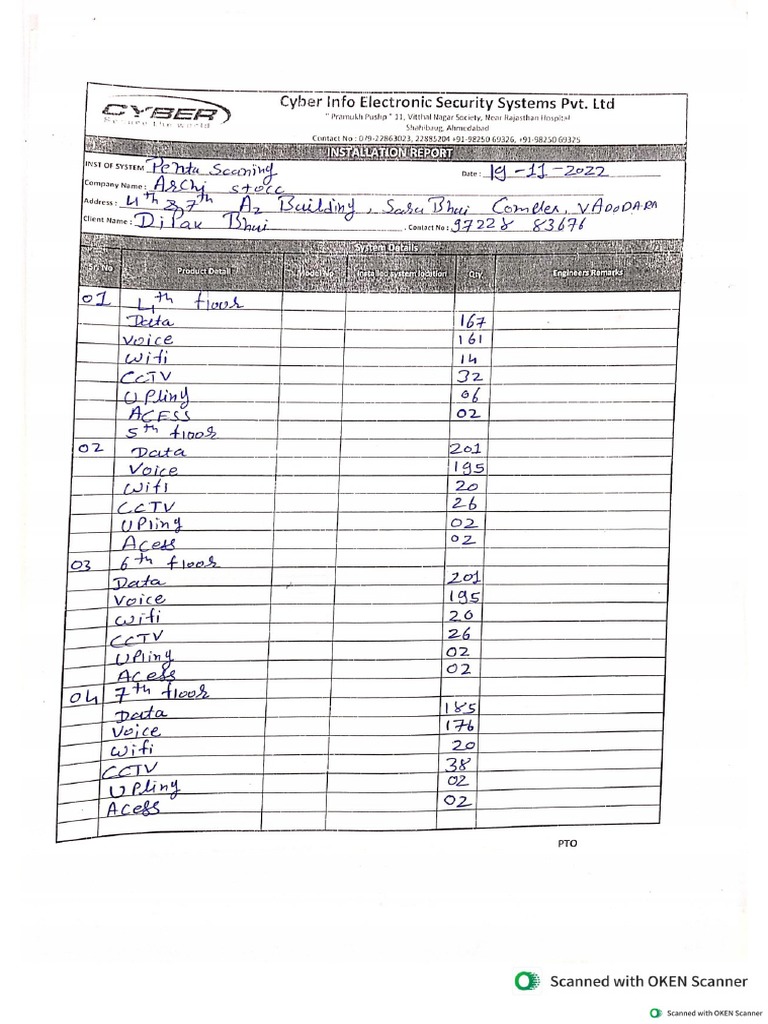 CYBER
Secure the world
Cyber Info Electronic Security Systems Pvt. Ltd
" Pramukh Pushp " 11, Vitthal Nagar Society, Near Rajasthan Hospital
Shahibaug, Ahmedabad
Contact No : 079-22863023, 22885204 +91-98250 69326, +91-98250 69325
INSTALLATION REPORT
INST OF SYSTEM Penta Scaning Date : 19-11-2022
Company Name : Archi stocc
Address : 4th & 7th A2 Building, Sara Bhui Comdex, VADODARA
Client Name : Dipak Bhui . Contact No : 97228 83676
System Details
Sr No Product Detail Model No Installed system location Qty. Engineers Remarks
01 4th floor
Data 167
Voice 161
Wifi 14
CCTV 32
UPling 06
ACESS 02
5th floor
02 Data 201
Voice 195
Wifi 20
CCTV 26
UPling 02
Acess 02
03 6th floor
Data 201
Voice 195
Wifi 20
CCTV 26
UPling 02
Acess 02
04 7th floor
Data 185
Voice 176
Wifi 20
CCTV 38
UPling 02
Acess 02
PTO
Scanned with OKEN Scanner
Scanned with OKEN Scanner